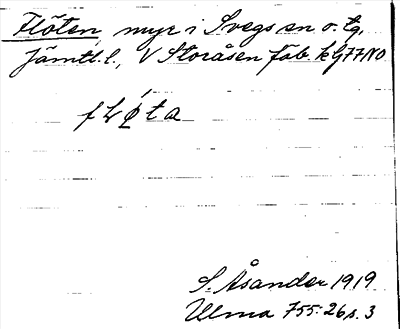 Flöten, myr i Svegs sn o. tg,
Jämtl. l., V Storåsen fäb. kG77NO
fLǿta
S. Åsander 1919
Ulma 755:26 s. 3